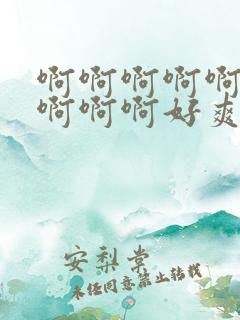 啊啊啊啊啊
啊啊啊好爽
安梨棠
未经同意禁止转载